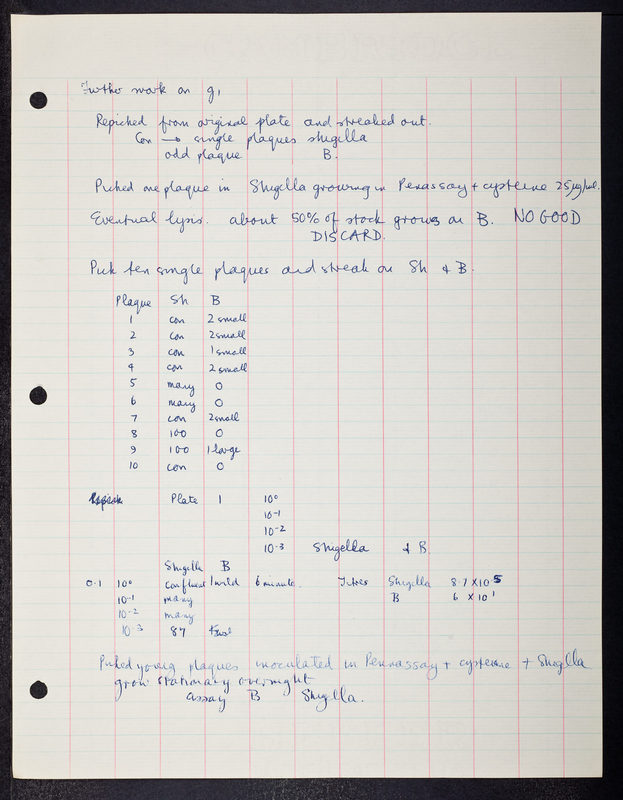 Further work on g1
Repicked from original plate and streaked out.
Con → single plaques shigella
odd plaque B.
Picked one plaque in Shigella growing in Penassay + cysteine 25 µg/ml.
Eventual lysis. about 50% of stock grows on B. NO GOOD
DISCARD.
Pick ten single plaques and streak on Sh & B.
Plaque Sh B
1 con 2 small
2 con 2 small
3 con 1 small
4 con 2 small
5 many 0
6 many 0
7 con 2 small
8 100 0
9 100 1 large
10 con 0
Plate 1 10⁰
10⁻¹
10⁻²
10⁻³ Shigella & B
Shigella B
0.1 10⁰ confluent 1 wild 6 minute. Titres Shigella 8.7 × 10⁵
10⁻¹ many B 6 × 10¹
10⁻² many
10⁻³ 87
Picked young plaques inoculated in Pennassay + cysteine + Shigella
grow stationary overnight
assay B Shigella.